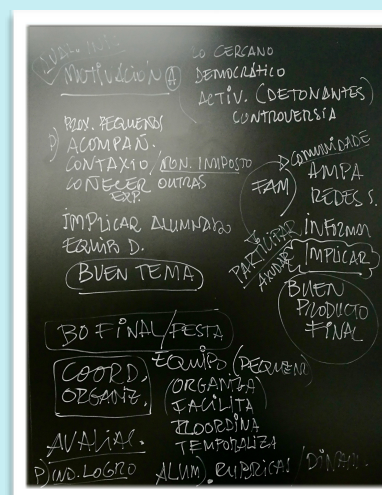 AVAL. INI
MOTIVACIÓN A
LO CERCANO
DEMOCRÁTICO
ACTIV. (DETONANTES)
CONTROVERSIA
P) PROX. PEQUENOS
ACOMPAÑ.
CONTAXIO / NON IMPOSTO
COÑECER OUTRAS
EXP.
IMPLICAR ALUMNADO
EQUIPO D.
BUEN TEMA
FAM
COMUNIDADE
AMPA
REDES S.
PARTICIPAR
AXUDAR
INFORMAR
IMPLICAR
BUEN
PRODUCTO
FINAL
BO FINAL/FESTA
COORD.
ORGANIZ.
EQUIPO (PEQUENO)
ORGANIZA
FACILITA
COORDINA
TEMPORALIZA
AVALIAC.
P) IND. LOGRO
ALUM). RUBRICAS